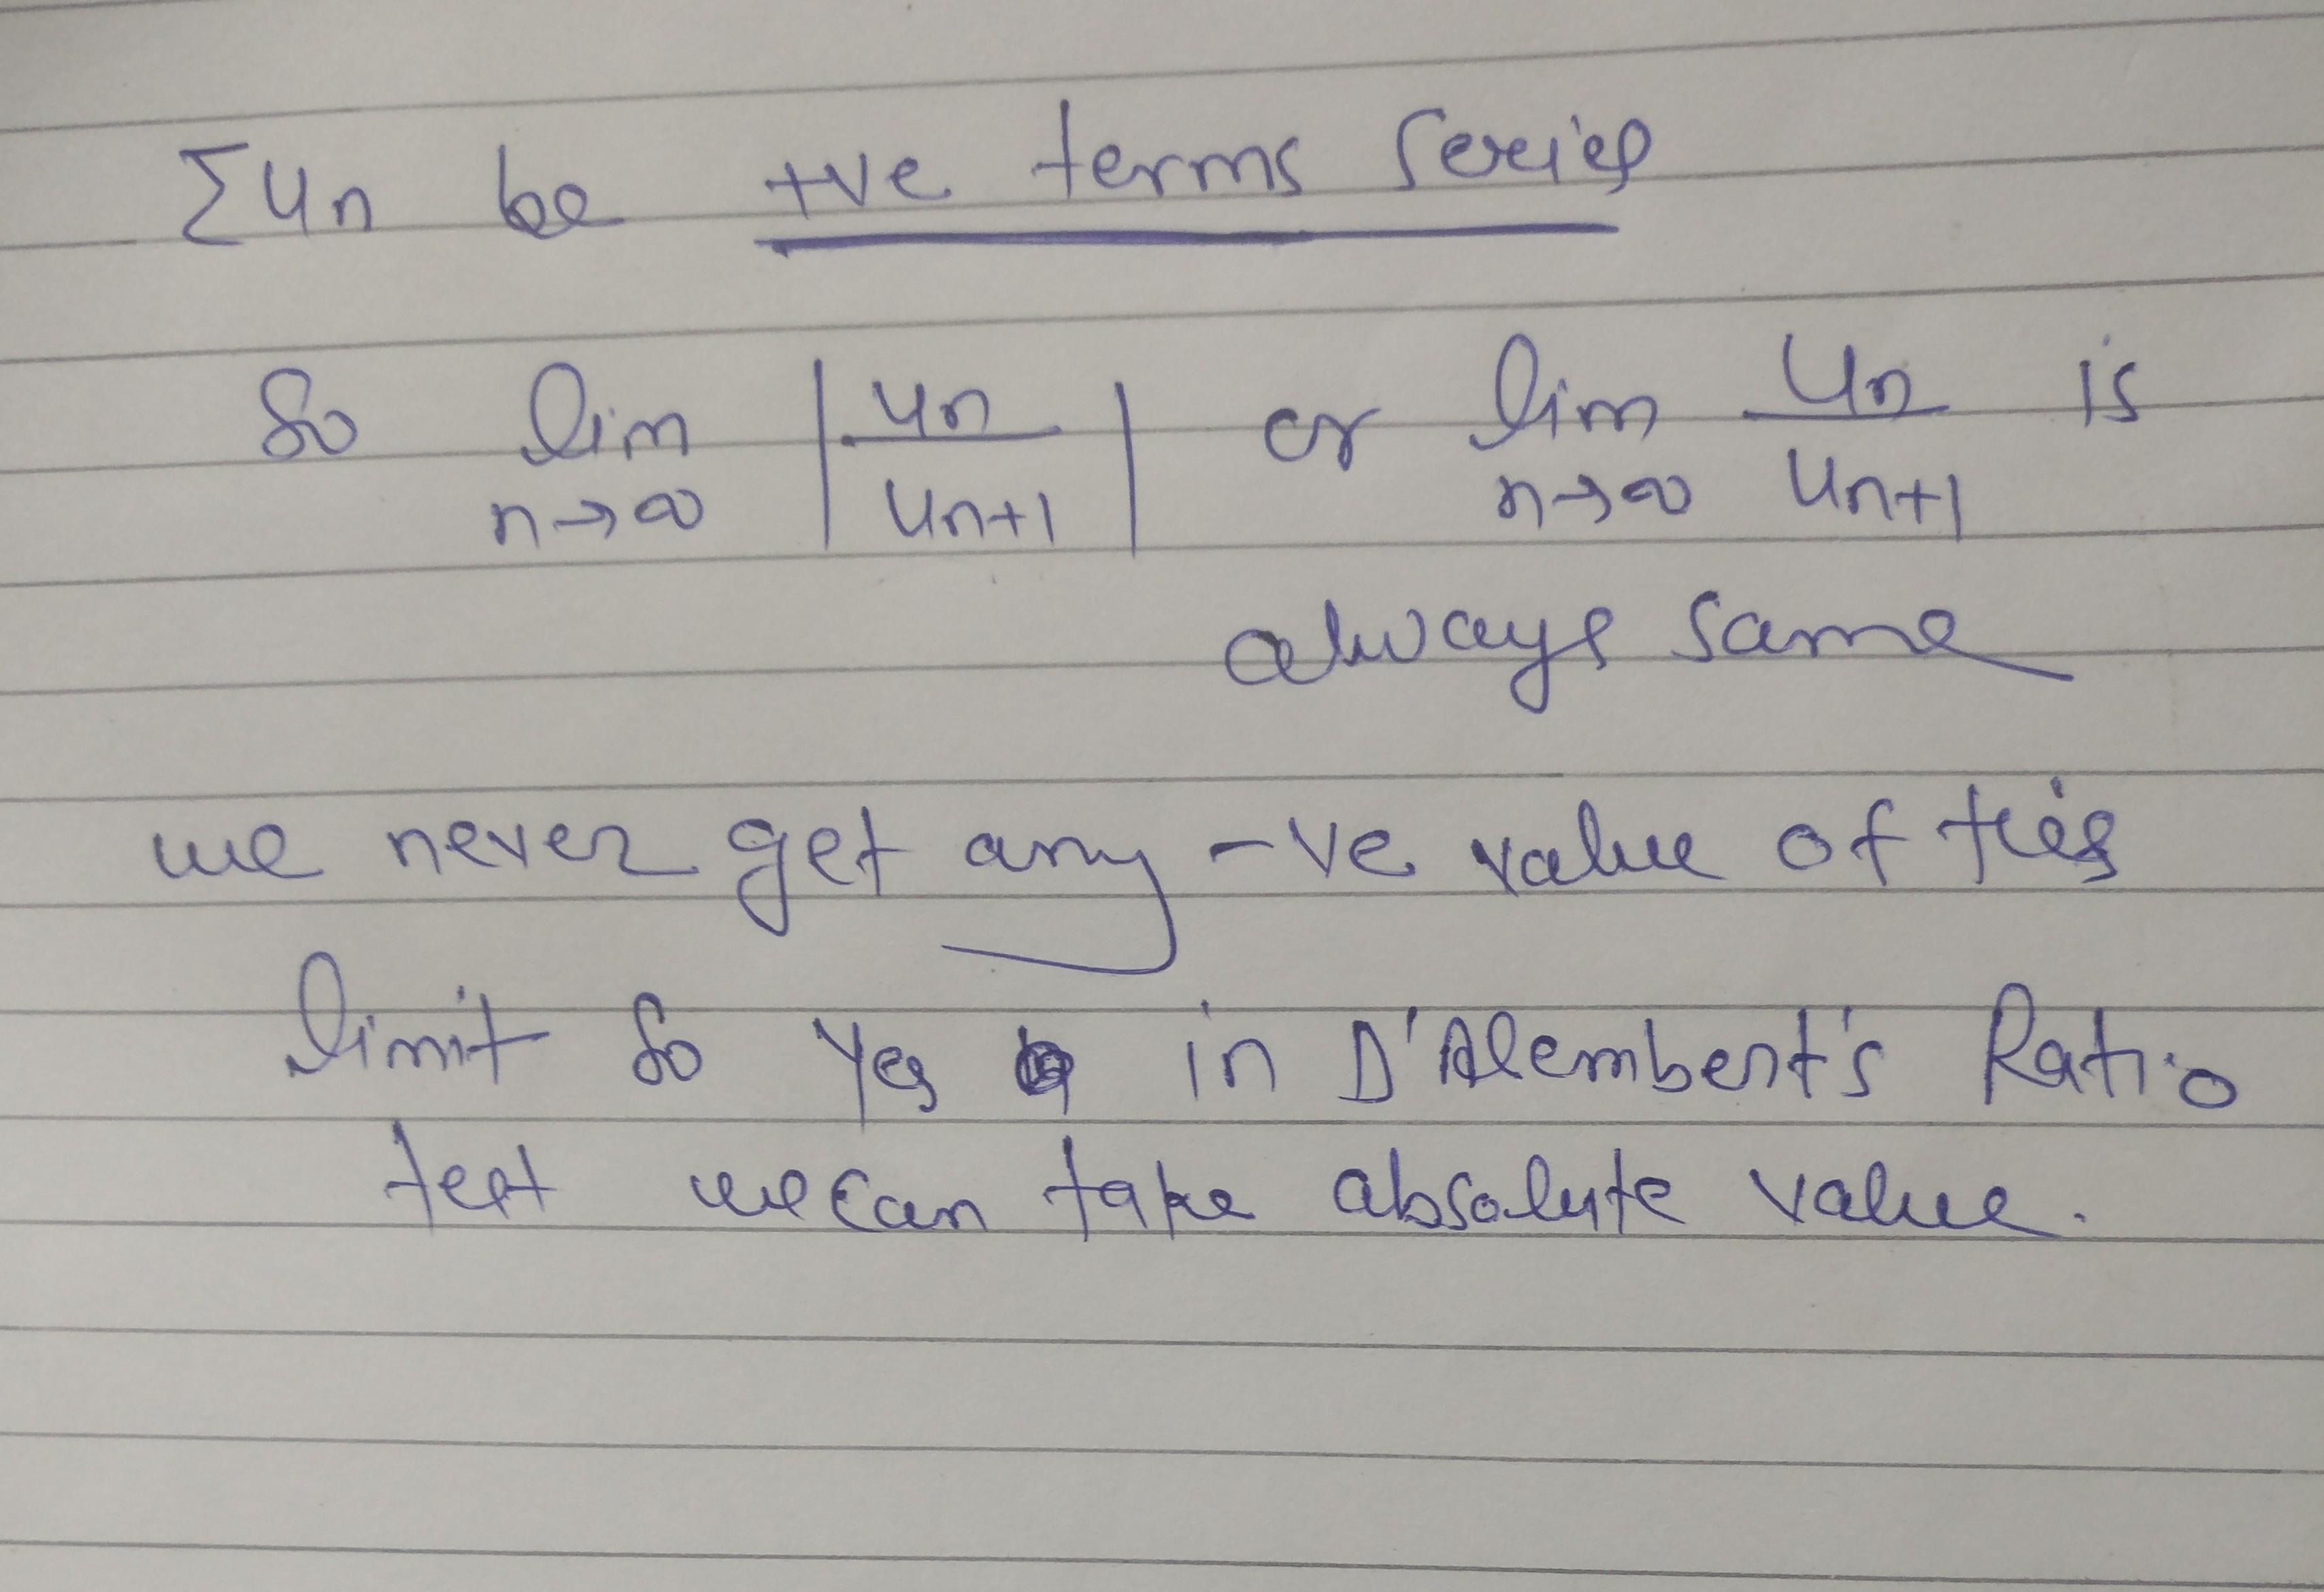 Σun be +ve terms series
So lim n→∞ |un/un+1| or lim n→∞ un/un+1 is
always same
we never get any -ve value of this
limit So Yes in D'Alembert's Ratio
test we can take absolute value.